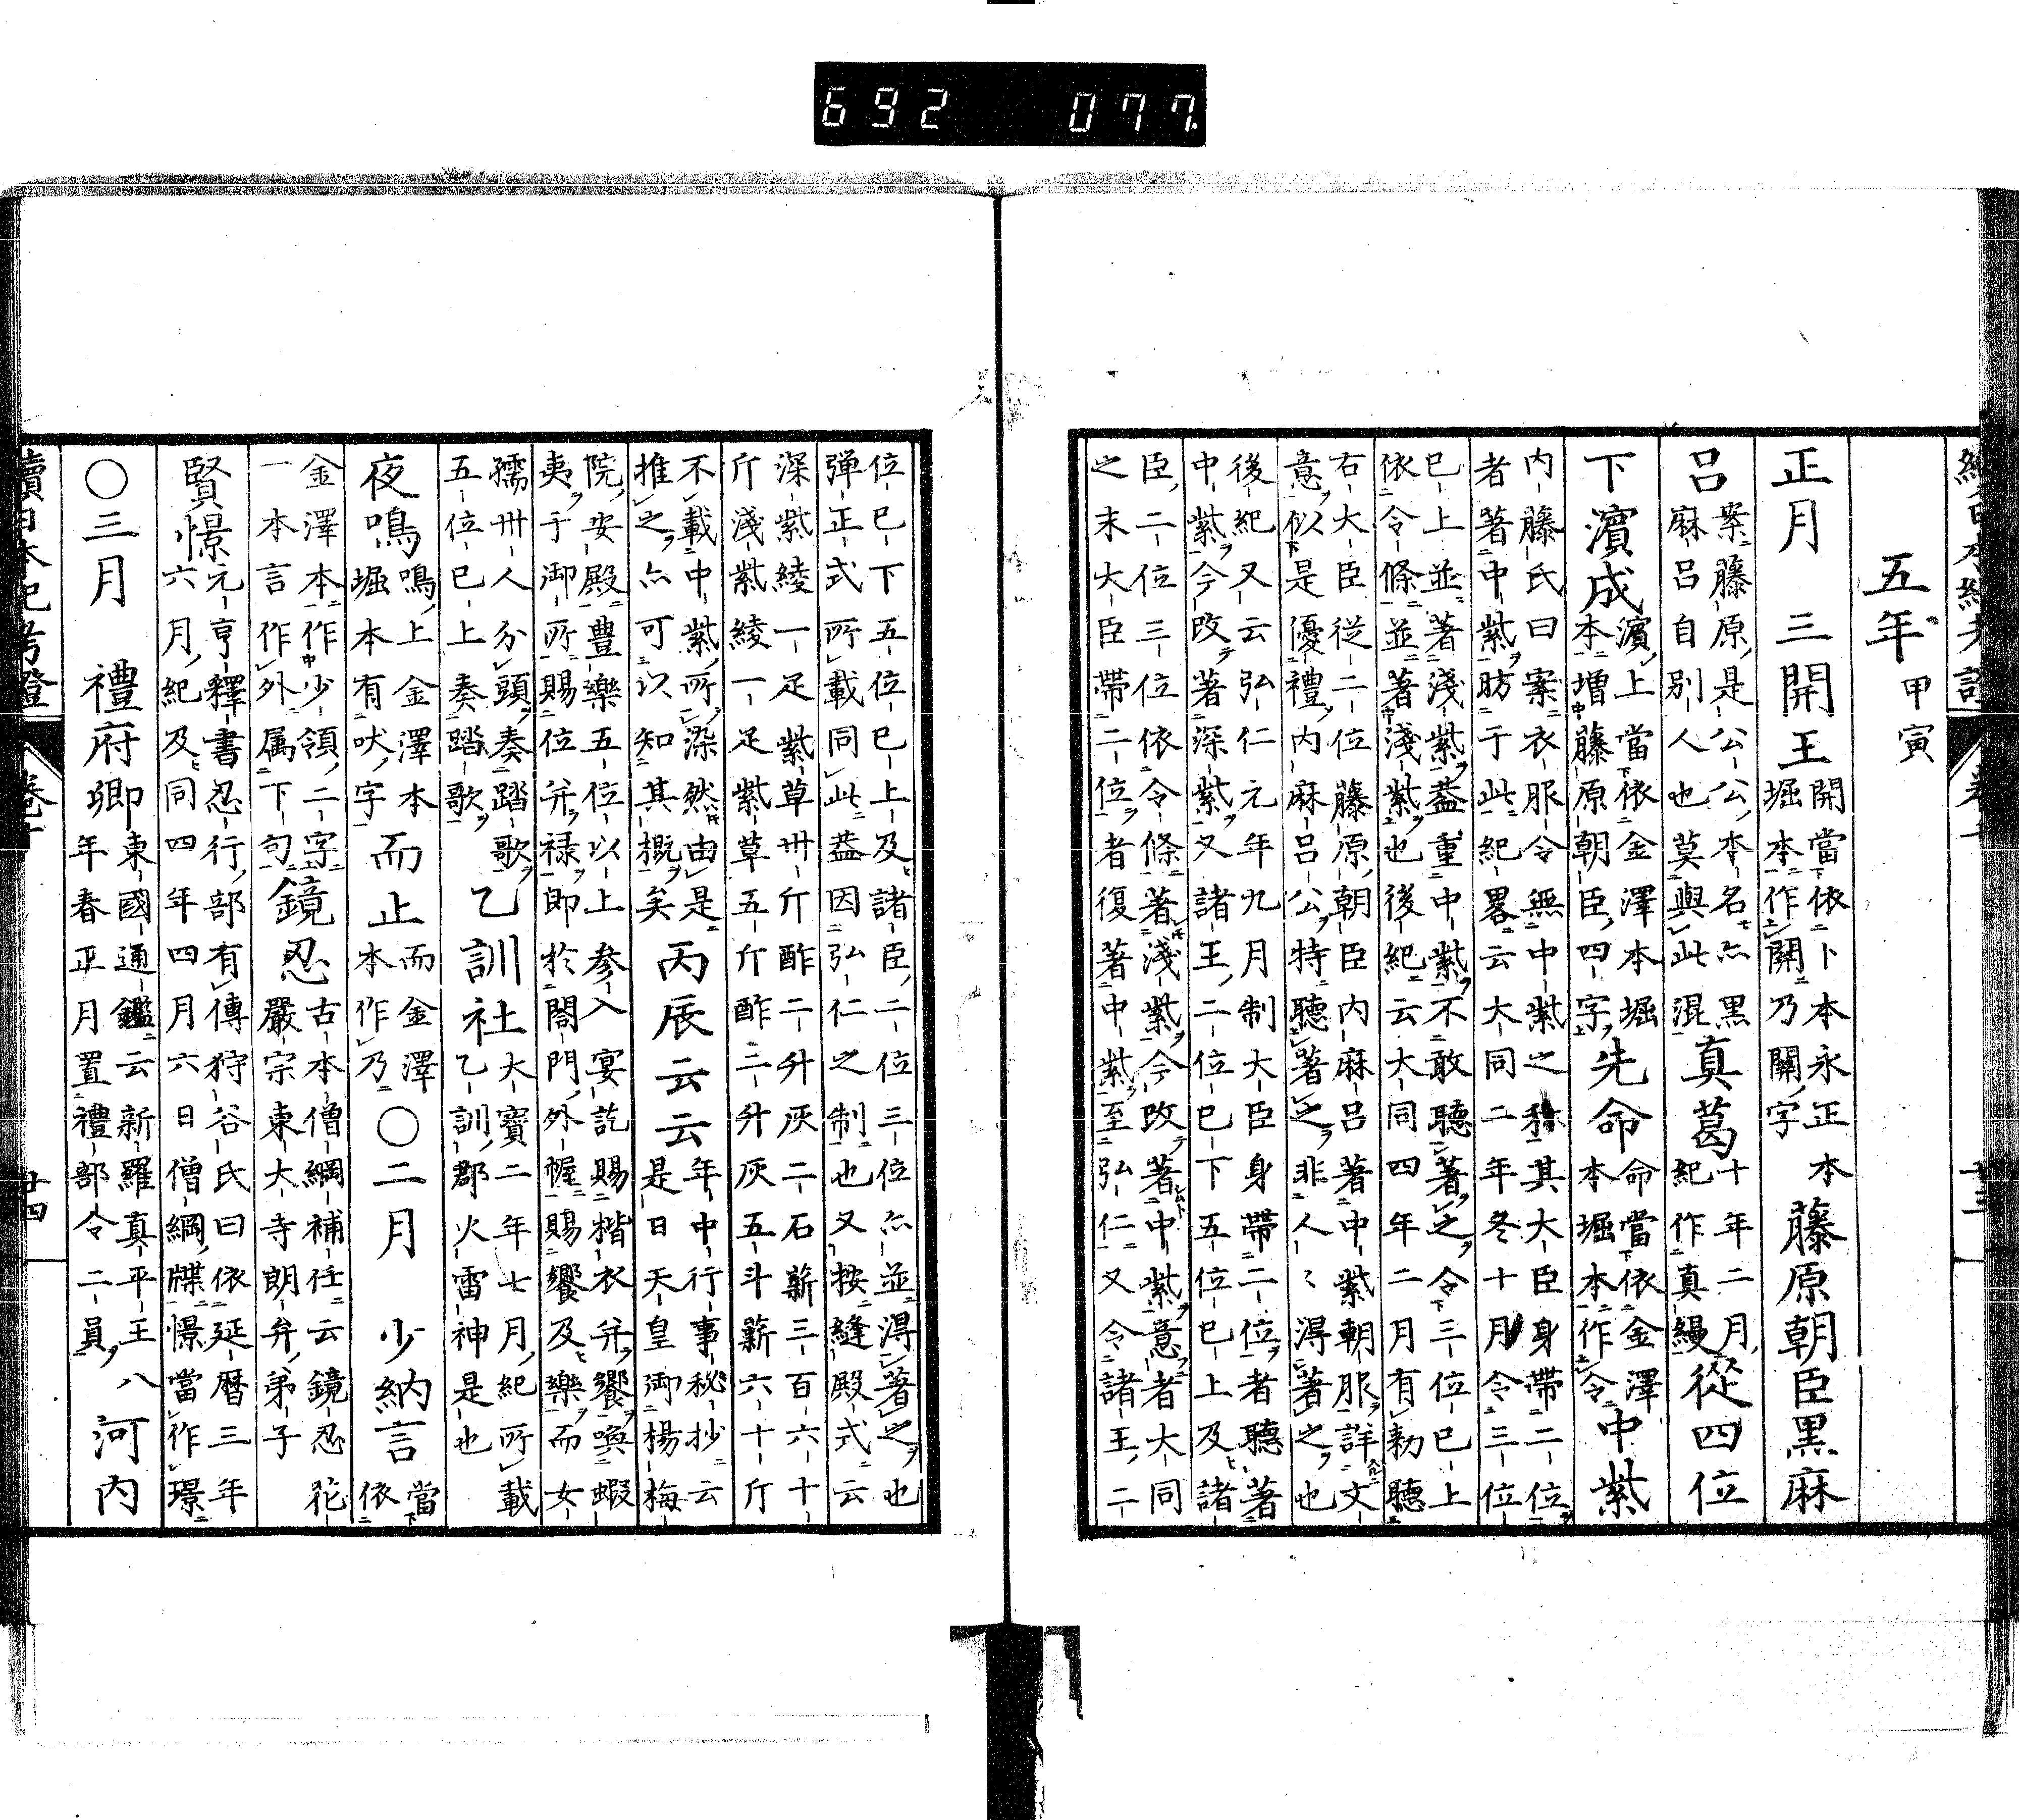 五年 甲寅
正月 三開王 開當依卜本永正本堀本作關乃關字 藤原朝臣黒麻
呂 案藤原是公公本名亦黒麻呂自別人也莫與此混 真葛 十年二月紀作真縵 從四位
下濱成 濱上當依金澤本堀本増藤原朝臣四字 先命 命當依金澤本堀本作令 中紫
内藤氏曰案衣服令無中紫之称其大臣身帶二位
者著中紫昉于此紀畧云大同二年冬十月令三位
已上並著淺紫葢重中紫不敢聽著之令三位已上
依令條並著淺紫也後紀云大同四年二月有勅聽
右大臣從二位藤原朝臣内麻呂著中紫朝服詳文
意似是優禮内麻呂公特聽著之非人々淂著之也
後紀又云弘仁元年九月制大臣身帶二位者聽著
中紫今改著深紫又諸王二位已下五位已上及諸
臣二位三位依令條著淺紫今改著中紫意者大同
之末大臣帶二位者復著中紫至弘仁又令諸王二
位已下五位已上及諸臣二位三位亦並淂著之也
弾正式所載同此葢因弘仁之制也又按縫殿式云
深紫綾一疋紫草卅斤酢二升灰二石薪三百六十
斤淺紫綾一疋紫草五斤酢二升灰五斗薪六十斤
不載中紫所染然由是推之亦可以知其概矣 丙辰云云 年中行事秘抄云是日天皇御楊梅
院安殿豊樂五位以上参入宴訖賜楷衣并饗喚蝦
夷于御所賜位并禄即於閤門外幄賜饗及樂而女
孺卅人分頭奏踏歌五位已上奏踏歌 乙訓社 大寶二年七月紀所載乙訓郡火雷神是也
夜鳴 鳴上金澤本堀本有吠字 而止 而金澤本作乃 〇二月 少納言 當依
金澤本作少領二字一本言作外属下句 鏡忍 古本僧綱補任云鏡忍花嚴宗東大寺朗弁弟子
賢憬 元亨釋書忍行部有傳狩谷氏曰依延暦三年六月紀及同四年四月六日僧綱牒憬當作璟
〇三月 禮府卿 東國通鑑云新羅真平王八年春正月置禮部令二員 河内
續日本紀考證 卷十 廿四
692 077